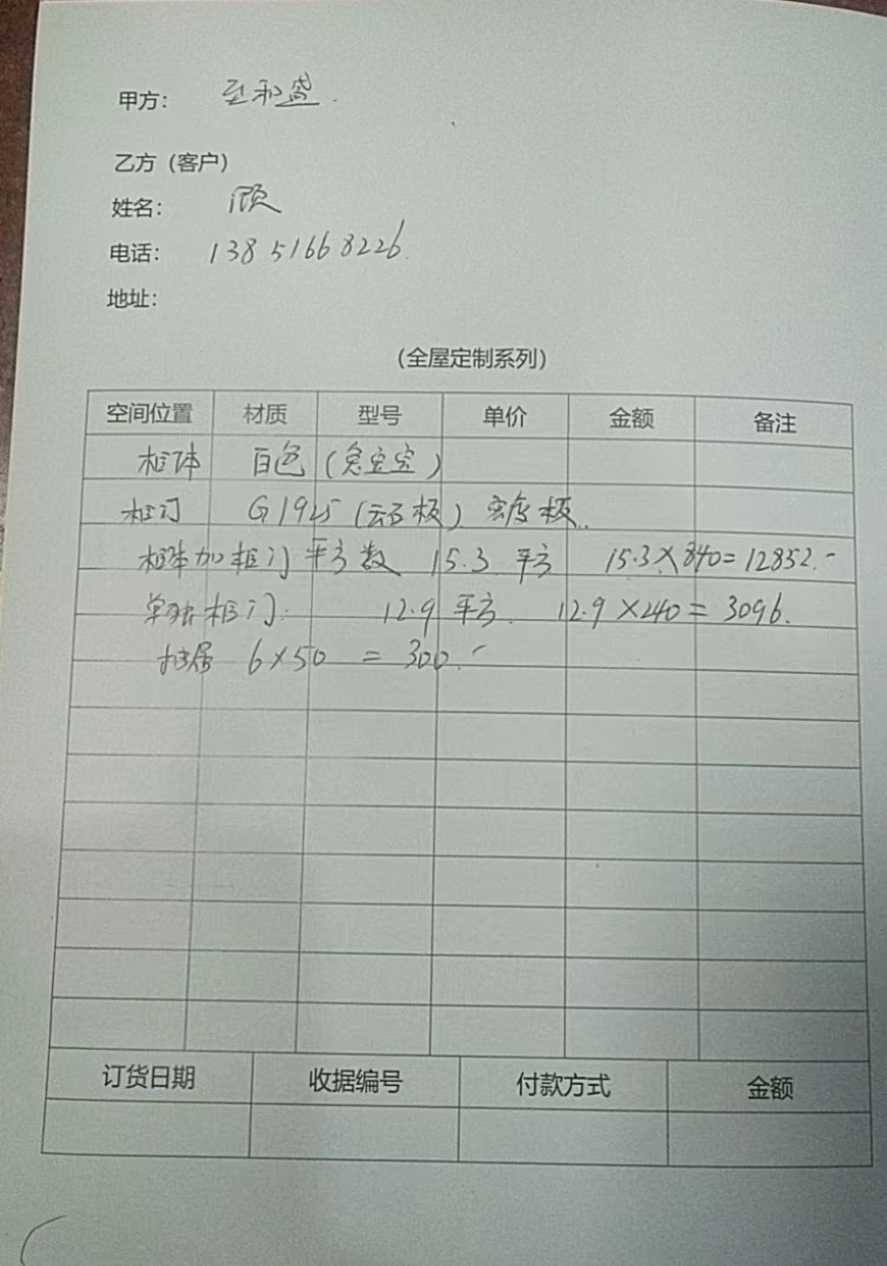 甲方： 至和盛.
乙方（客户）
姓名： 顾
电话： 13851668226.
地址：
（全屋定制系列）
空间位置 材质 型号 单价 金额 备注
柜体 白色（兔宝宝）
柜门 G1925 板） 密度板.
柜体加柜门平方数 15.3 平方 15.3×840=12852.-
单独柜门. 12.9 平方. 12.9×240=3096.
6×50 = 300.-
订货日期 收据编号 付款方式 金额